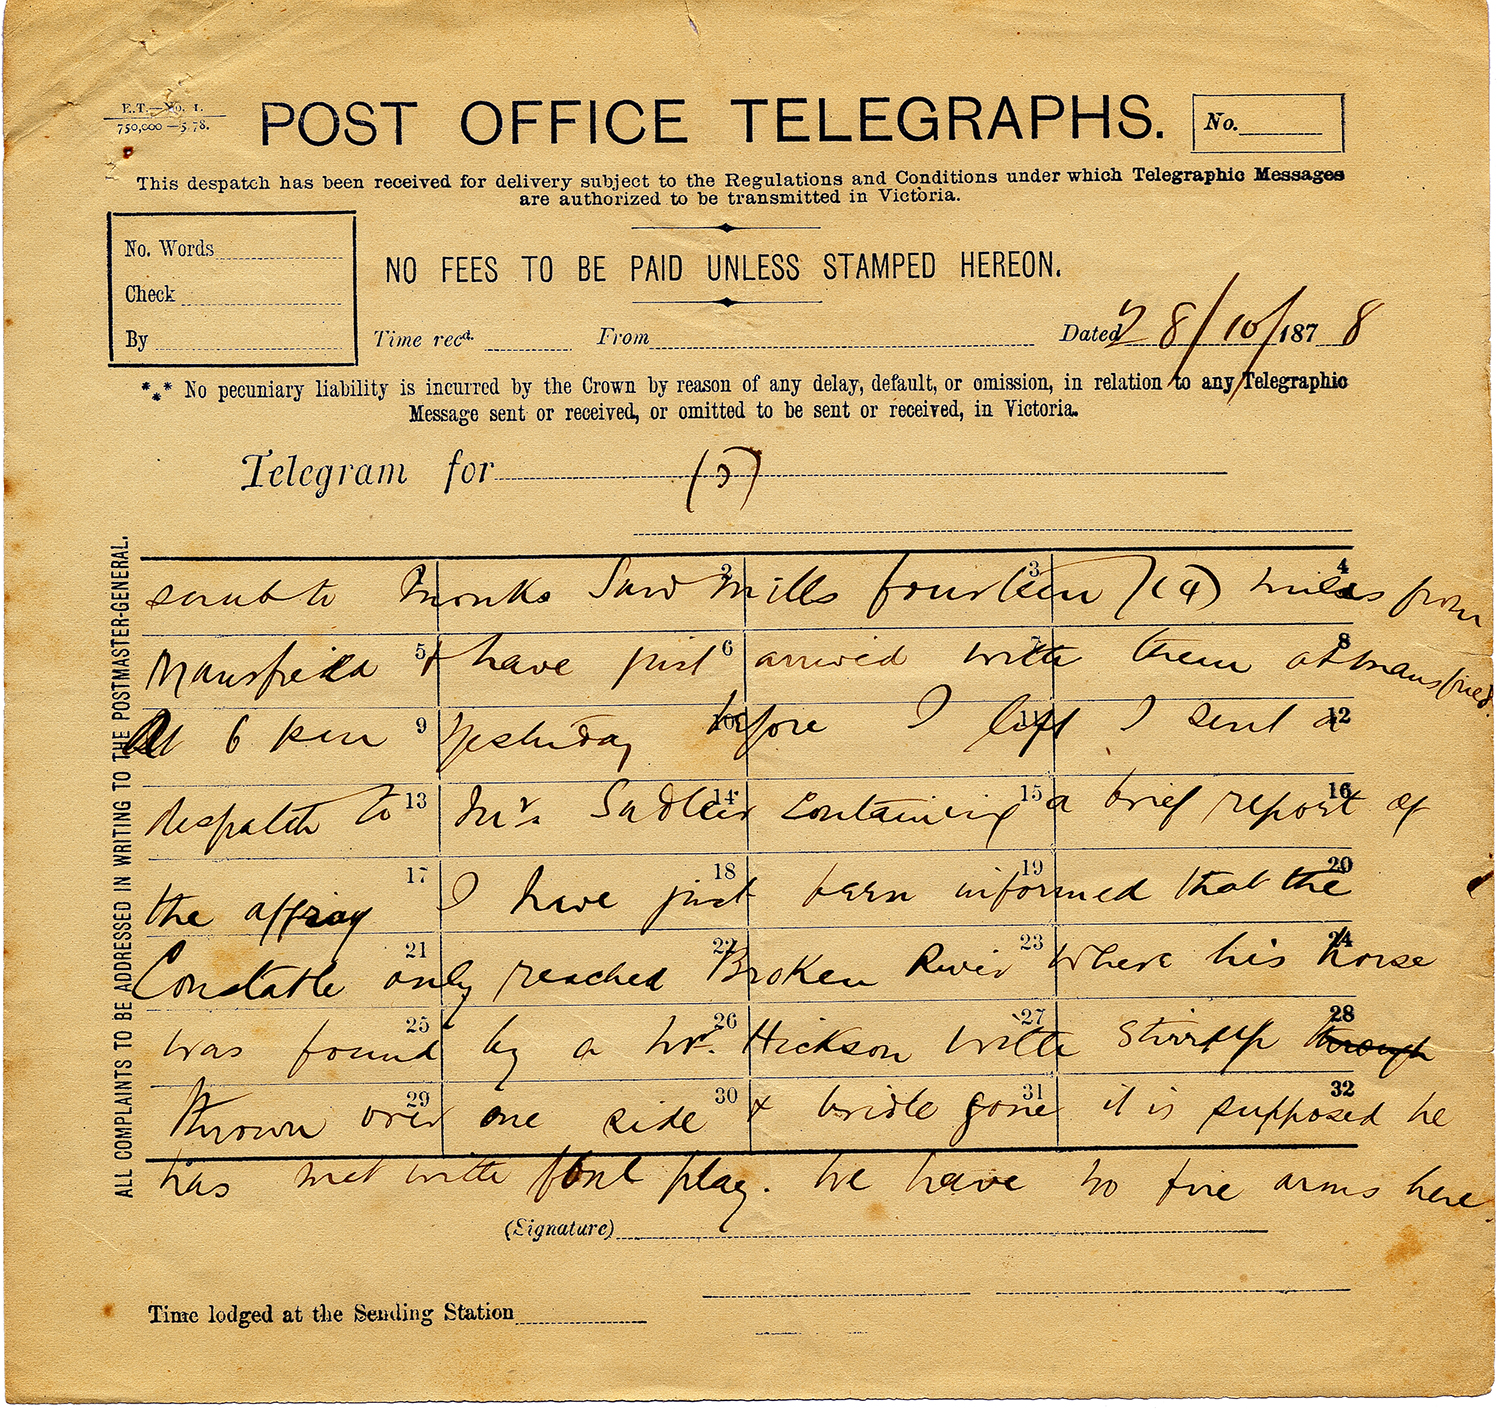 E.T.—No. 1.
750,000—5.78.
POST OFFICE TELEGRAPHS.
No.
This despatch has been received for delivery subject to the Regulations and Conditions under which Telegraphic Messages
are authorized to be transmitted in Victoria.
No. Words
Check
By
NO FEES TO BE PAID UNLESS STAMPED HEREON.
Time recd. From Dated 28/10/1878
*** No pecuniary liability is incurred by the Crown by reason of any delay, default, or omission, in relation to any Telegraphic
Message sent or received, or omitted to be sent or received, in Victoria.
Telegram for (5)
ALL COMPLAINTS TO BE ADDRESSED IN WRITING TO THE POSTMASTER-GENERAL.
1 2 3 4
scrub to Monks Saw Mills fourteen (14) miles from
5 6 7 8
Mansfield & have just arrived with them at Mansfield
9 10 11 12
At 6 pm yesterday before I left I sent a
13 14 15 16
despatch to Mr. Sadleir containing a brief report of
17 18 19 20
the affray I have just been informed that the
21 22 23 24
Constable only reached Broken River where his horse
25 26 27 28
was found by a Mr. Hickson with stirrup through
29 30 31 32
thrown over one side & bridle gone it is supposed he
has met with foul play. We have no fire arms here.
(Signature)
Time lodged at the Sending Station